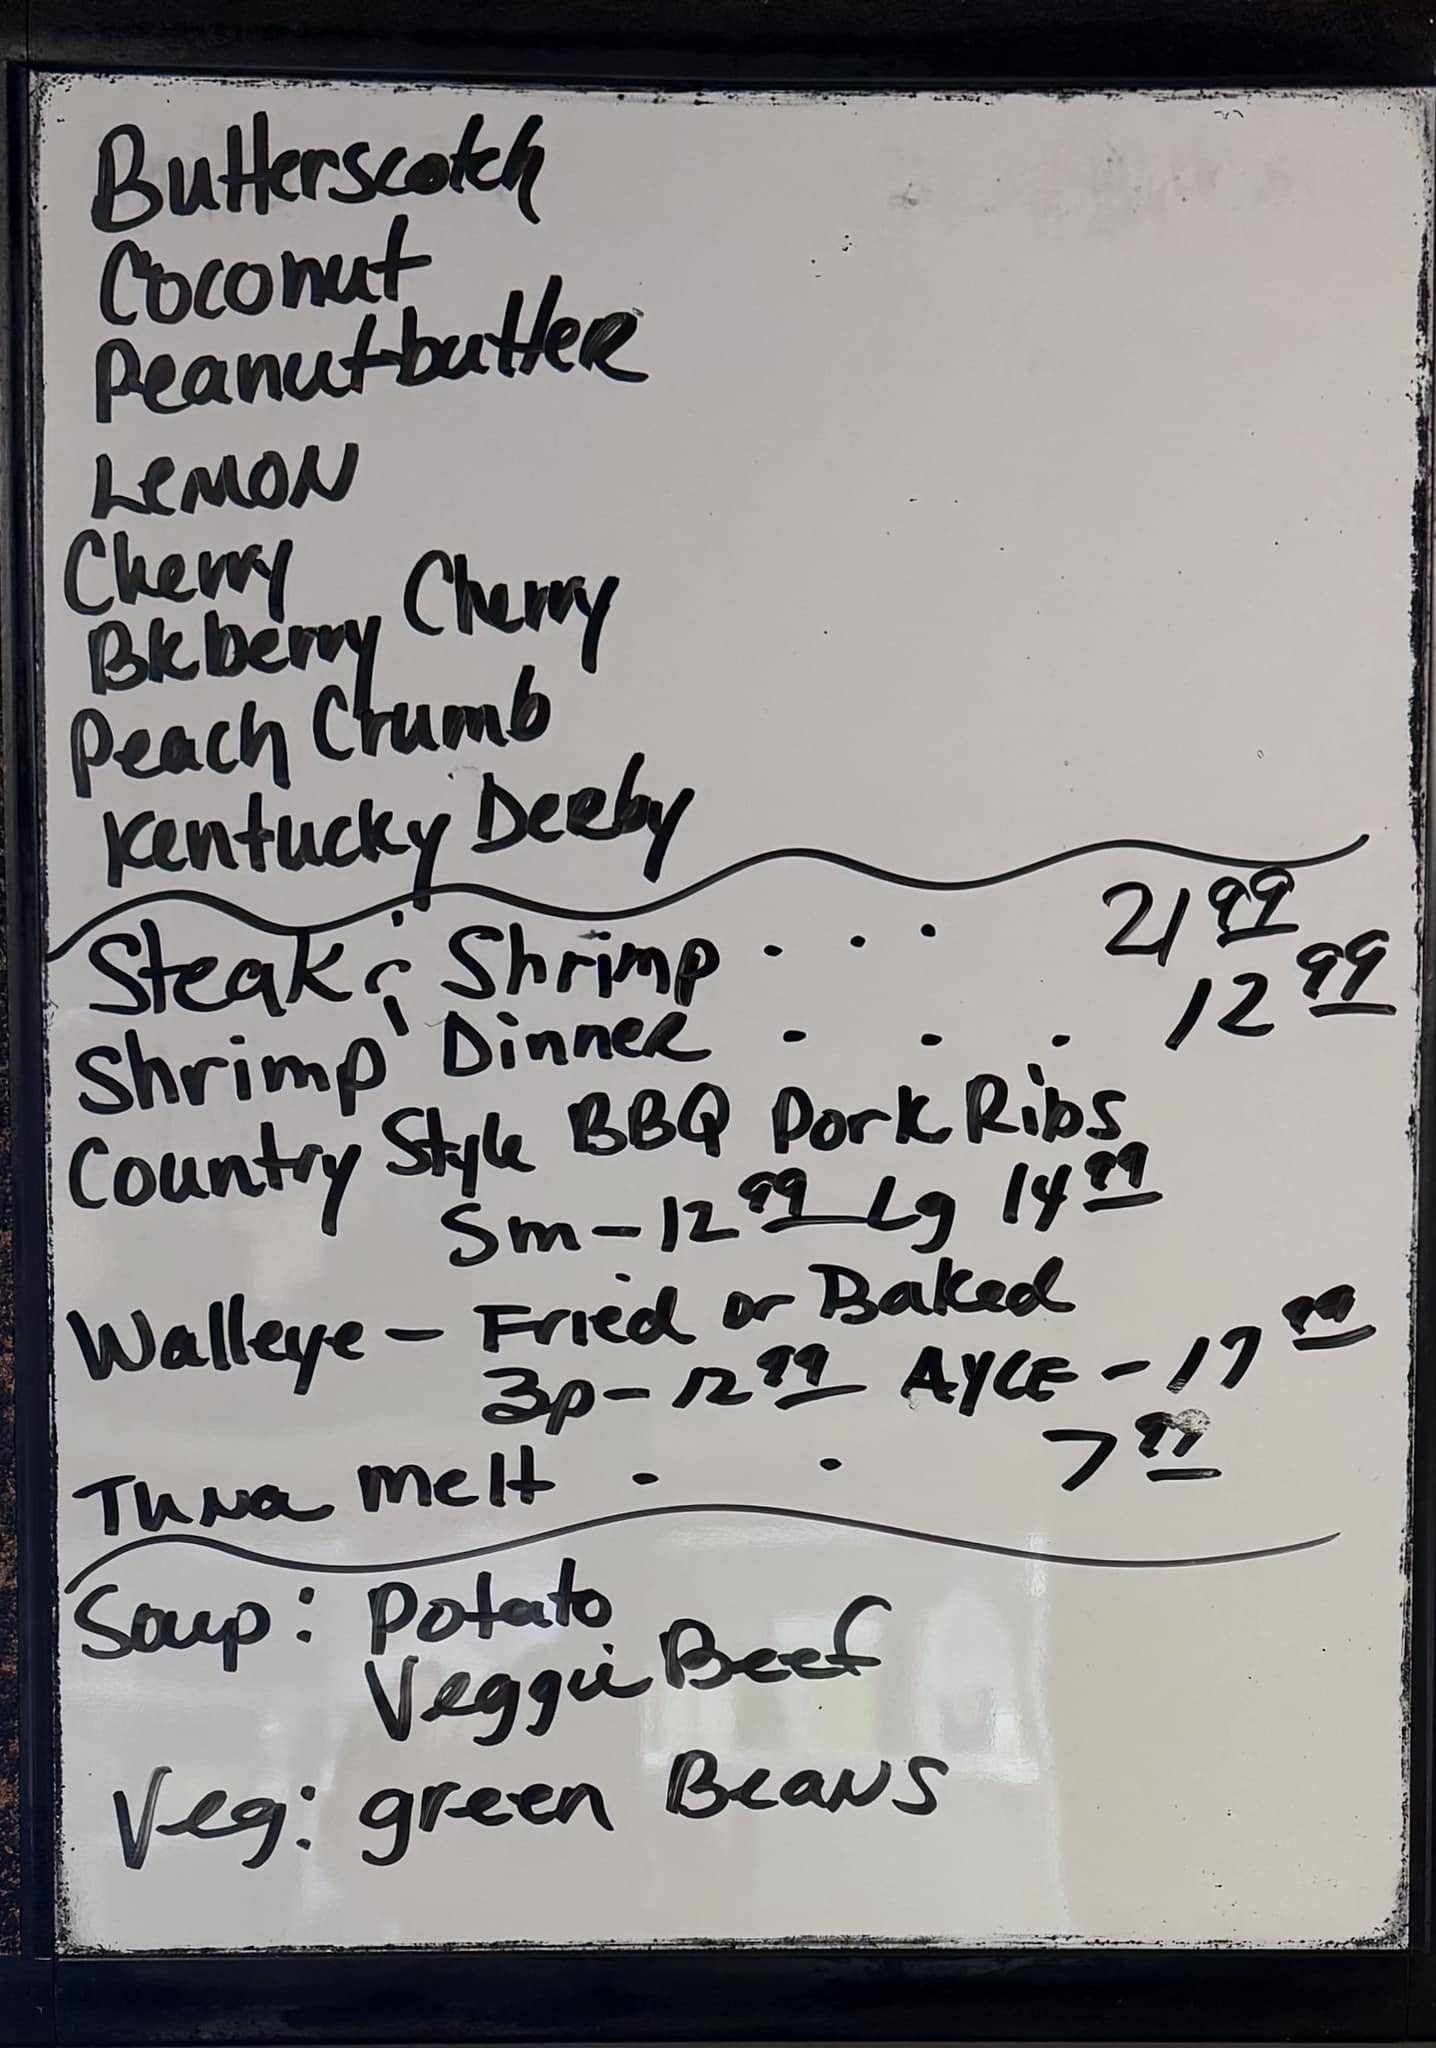 Butterscotch
Coconut
Peanutbutter
Lemon
Cherry
Bkberry Cherry
Peach Crumb
Kentucky Derby
Steak & Shrimp . . . 21 99
Shrimp Dinner . . . 12 99
Country Style BBQ Pork Ribs
Sm - 12 99 Lg 14 99
Walleye - Fried or Baked
3p - 12 99 AYCE - 17 99
Tuna melt . . 7 99
Soup: Potato
Veggie Beef
Veg: green Beans